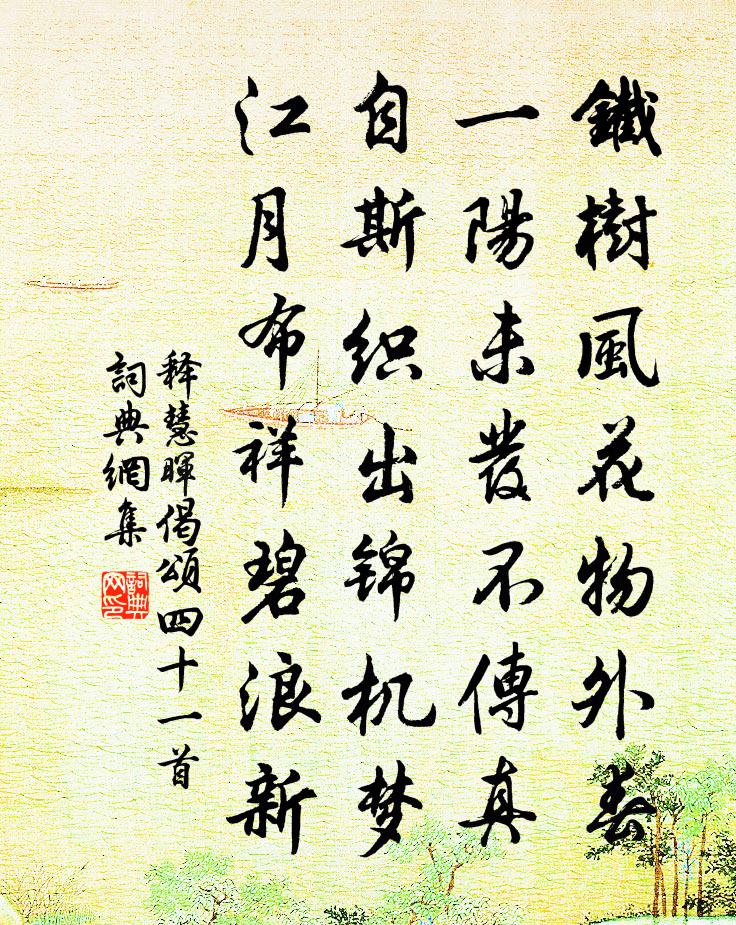 鐵樹風花物外春
一陽未發不傳真
自斯织出锦机梦
江月布祥碧浪新
释慧暉偈頌四十一首
詞典網集
詞典网印